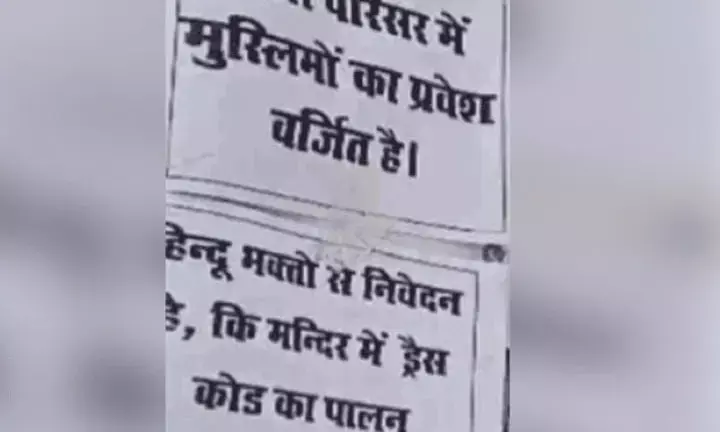 परिसर में
मुस्लिमों का प्रवेश
वर्जित है।
हिन्दू भक्तो से निवेदन
है, कि मन्दिर में ड्रैस
कोड का पालन